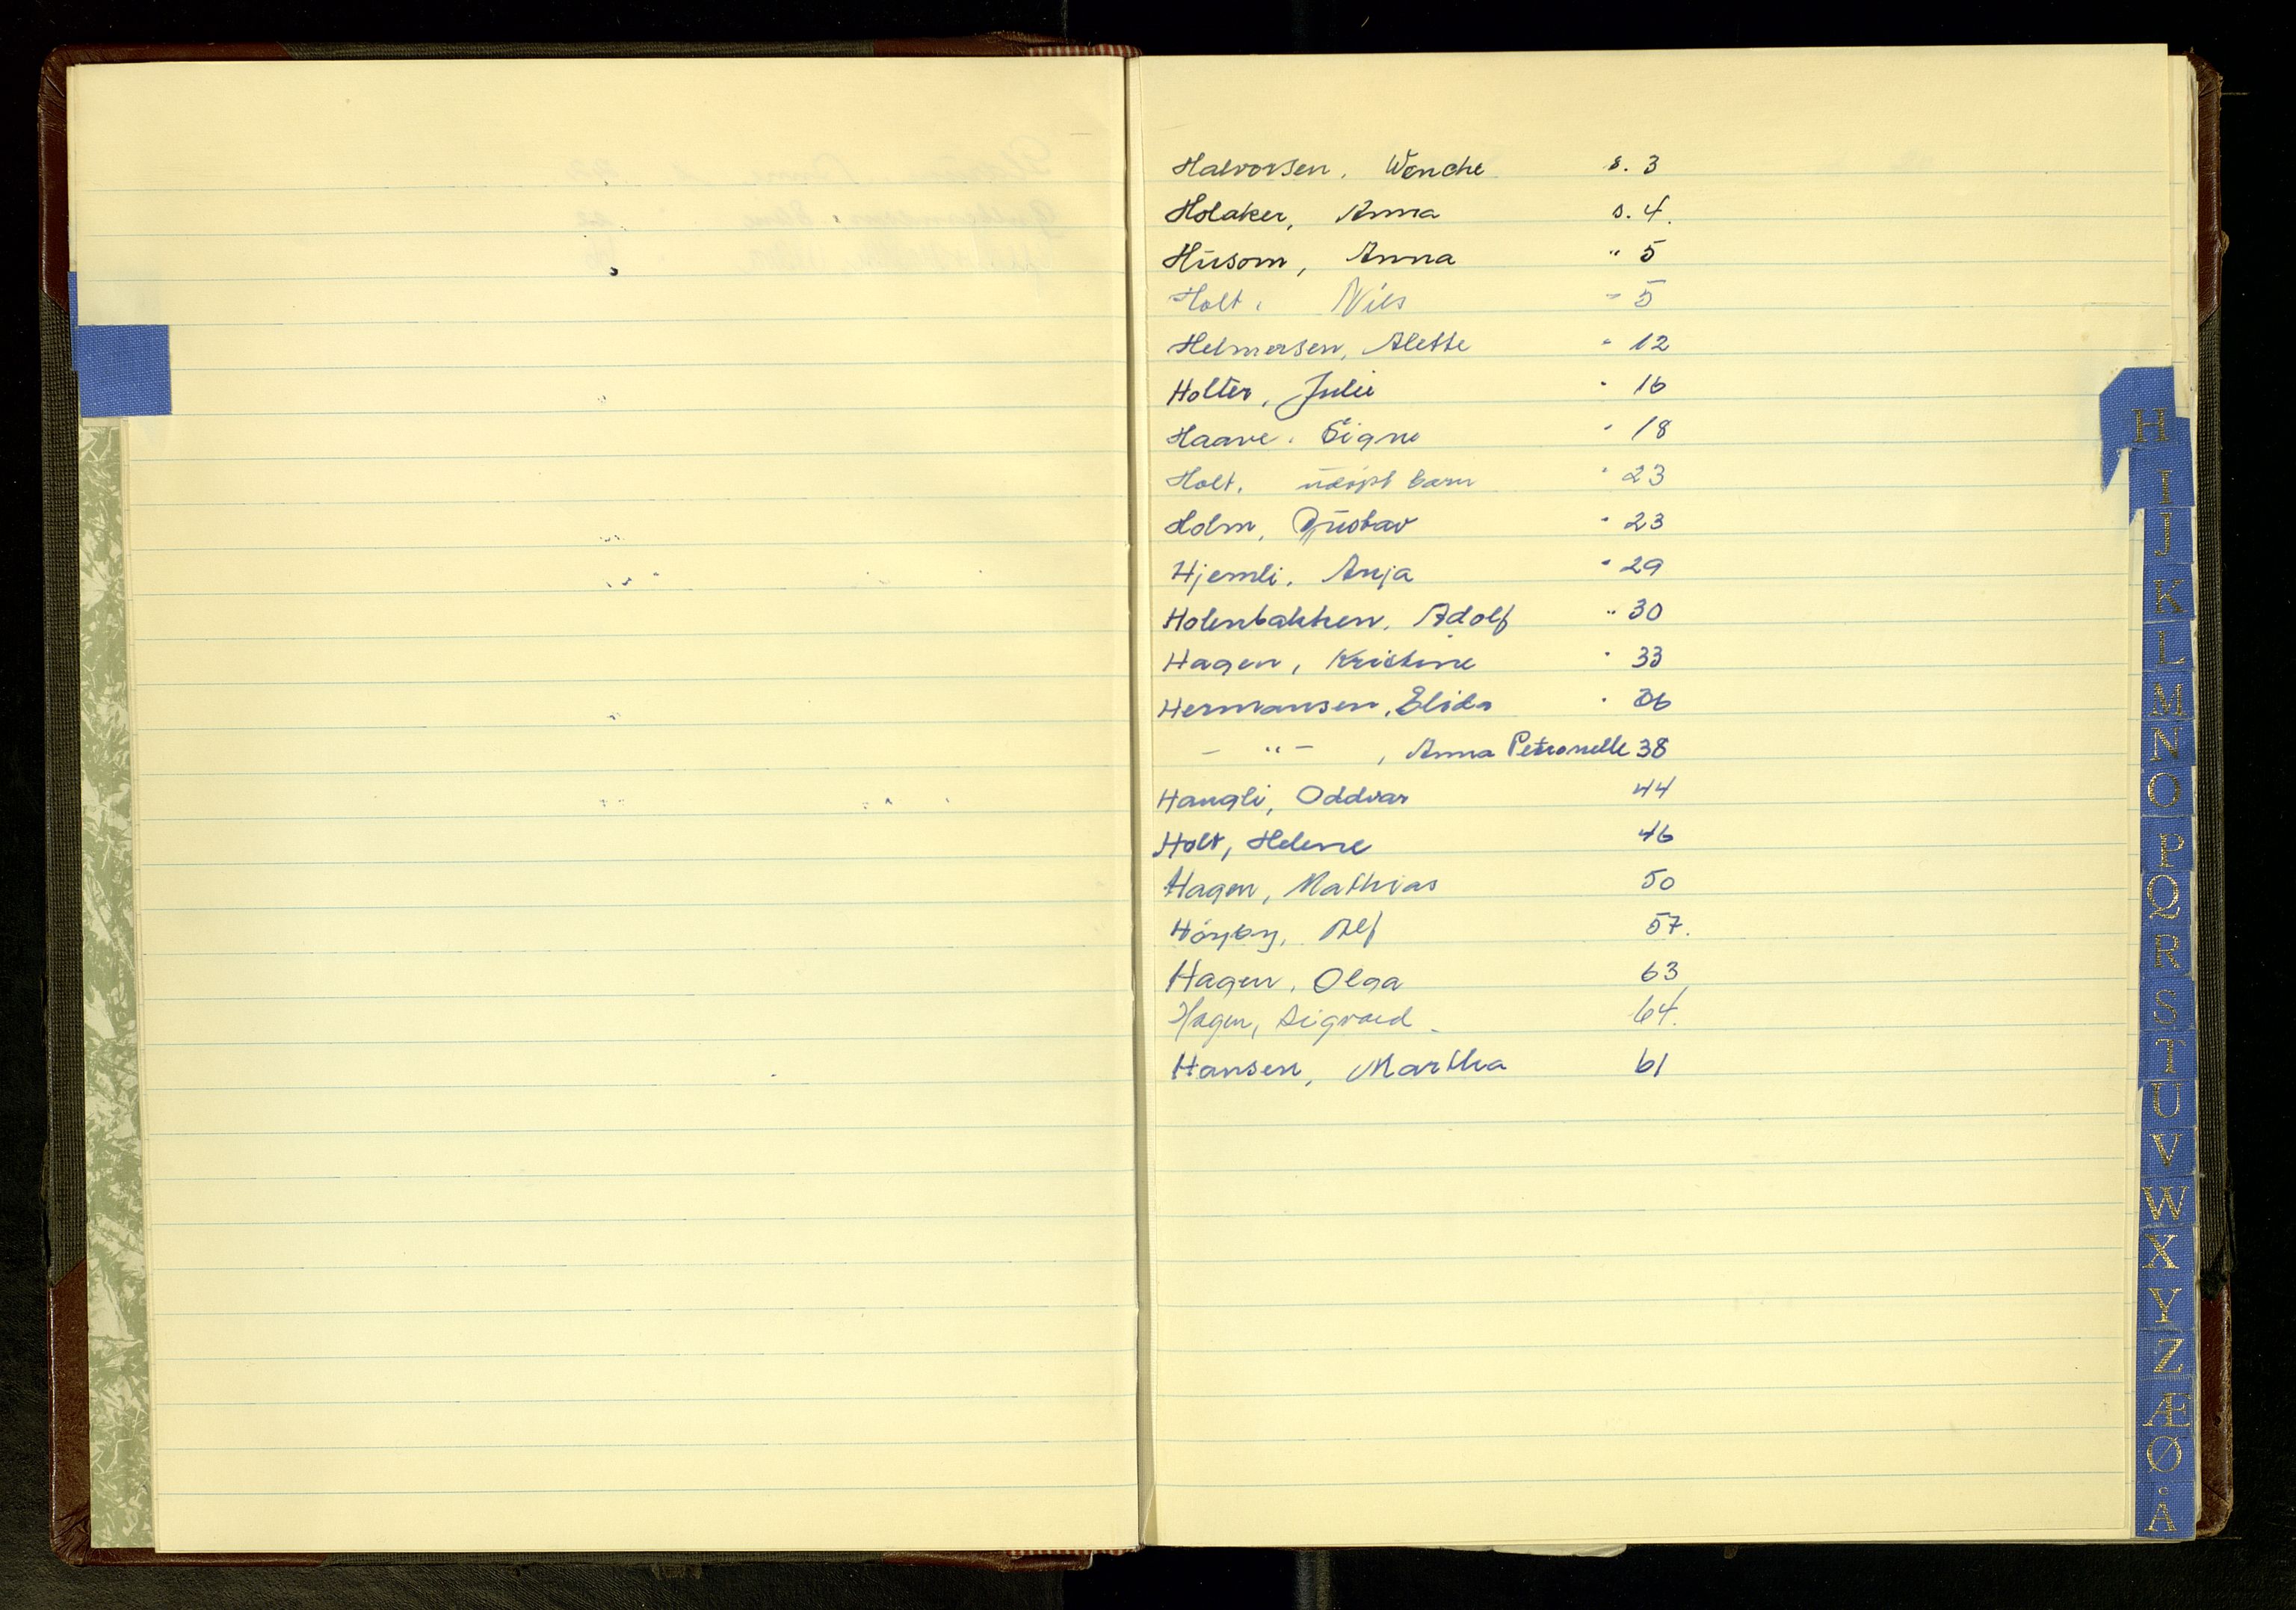 Halvorsen, Wenche s. 3
Holaker, Anna s. 4.
Husom, Anna " 5
Holt, Nils " 5
Helmersen, Alette " 12
Holter, Julie " 16
Haave, Signe " 18
Holt, udöpt barn " 23
Holm, Gustav " 23
Hjemli, Anja " 29
Holenbakken, Adolf " 30
Hagen, Kristine " 33
Hermansen, Elida " 36
- " - , Anna Petronelle 38
Haugli, Oddvar 44
Holt, Helene 46
Hagen, Mathias 50
Höyby, Alf 57.
Hagen, Olga 63
Hagen, Sigvard 64.
Hansen, Martha 61
H
I
J
K
L
M
N
O
P
Q
R
S
T
U
V
W
X
Y
Z
Æ
Ø
Å